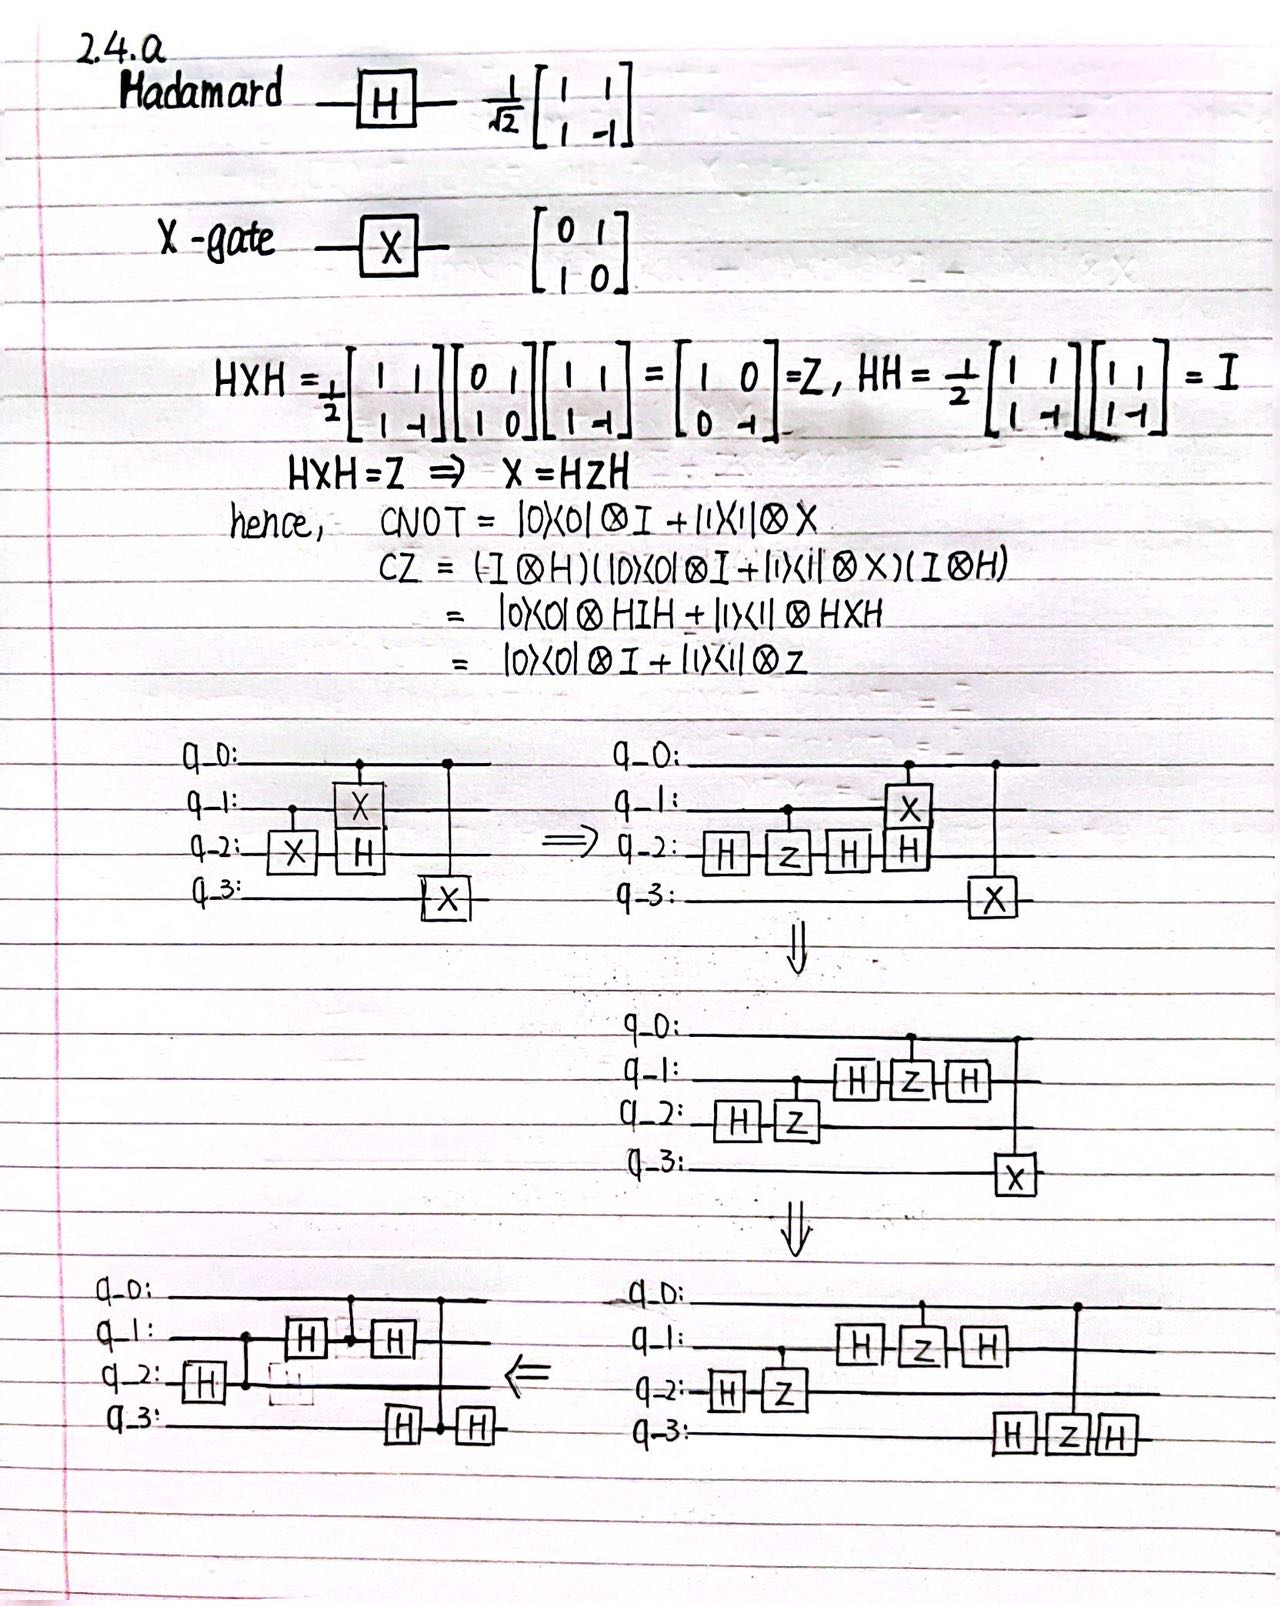 2.4.a
Hadamard H 1/√2 [1 1
1 -1]
X-gate X [0 1
1 0]
HXH = 1/2 [1 1
1 -1] [0 1
1 0] [1 1
1 -1] = [1 0
0 -1] = Z, HH = 1/2 [1 1
1 -1] [1 1
1 -1] = I
HXH = Z ⇒ X = HZH
hence, CNOT = |0><0| ⊗ I + |1><1| ⊗ X
CZ = (I ⊗ H)(|0><0| ⊗ I + |1><1| ⊗ X)(I ⊗ H)
= |0><0| ⊗ HIH + |1><1| ⊗ HXH
= |0><0| ⊗ I + |1><1| ⊗ Z
q_0:
q_1: X
q_2: X H
q_3: X
⇒
q_0:
q_1: X
q_2: H Z H H
q_3: X
⇓
q_0:
q_1: H Z H
q_2: H Z
q_3: X
⇓
q_0:
q_1: H Z H
q_2: H Z
q_3: H Z H
⇐
q_0:
q_1: H H
q_2: H
q_3: H H